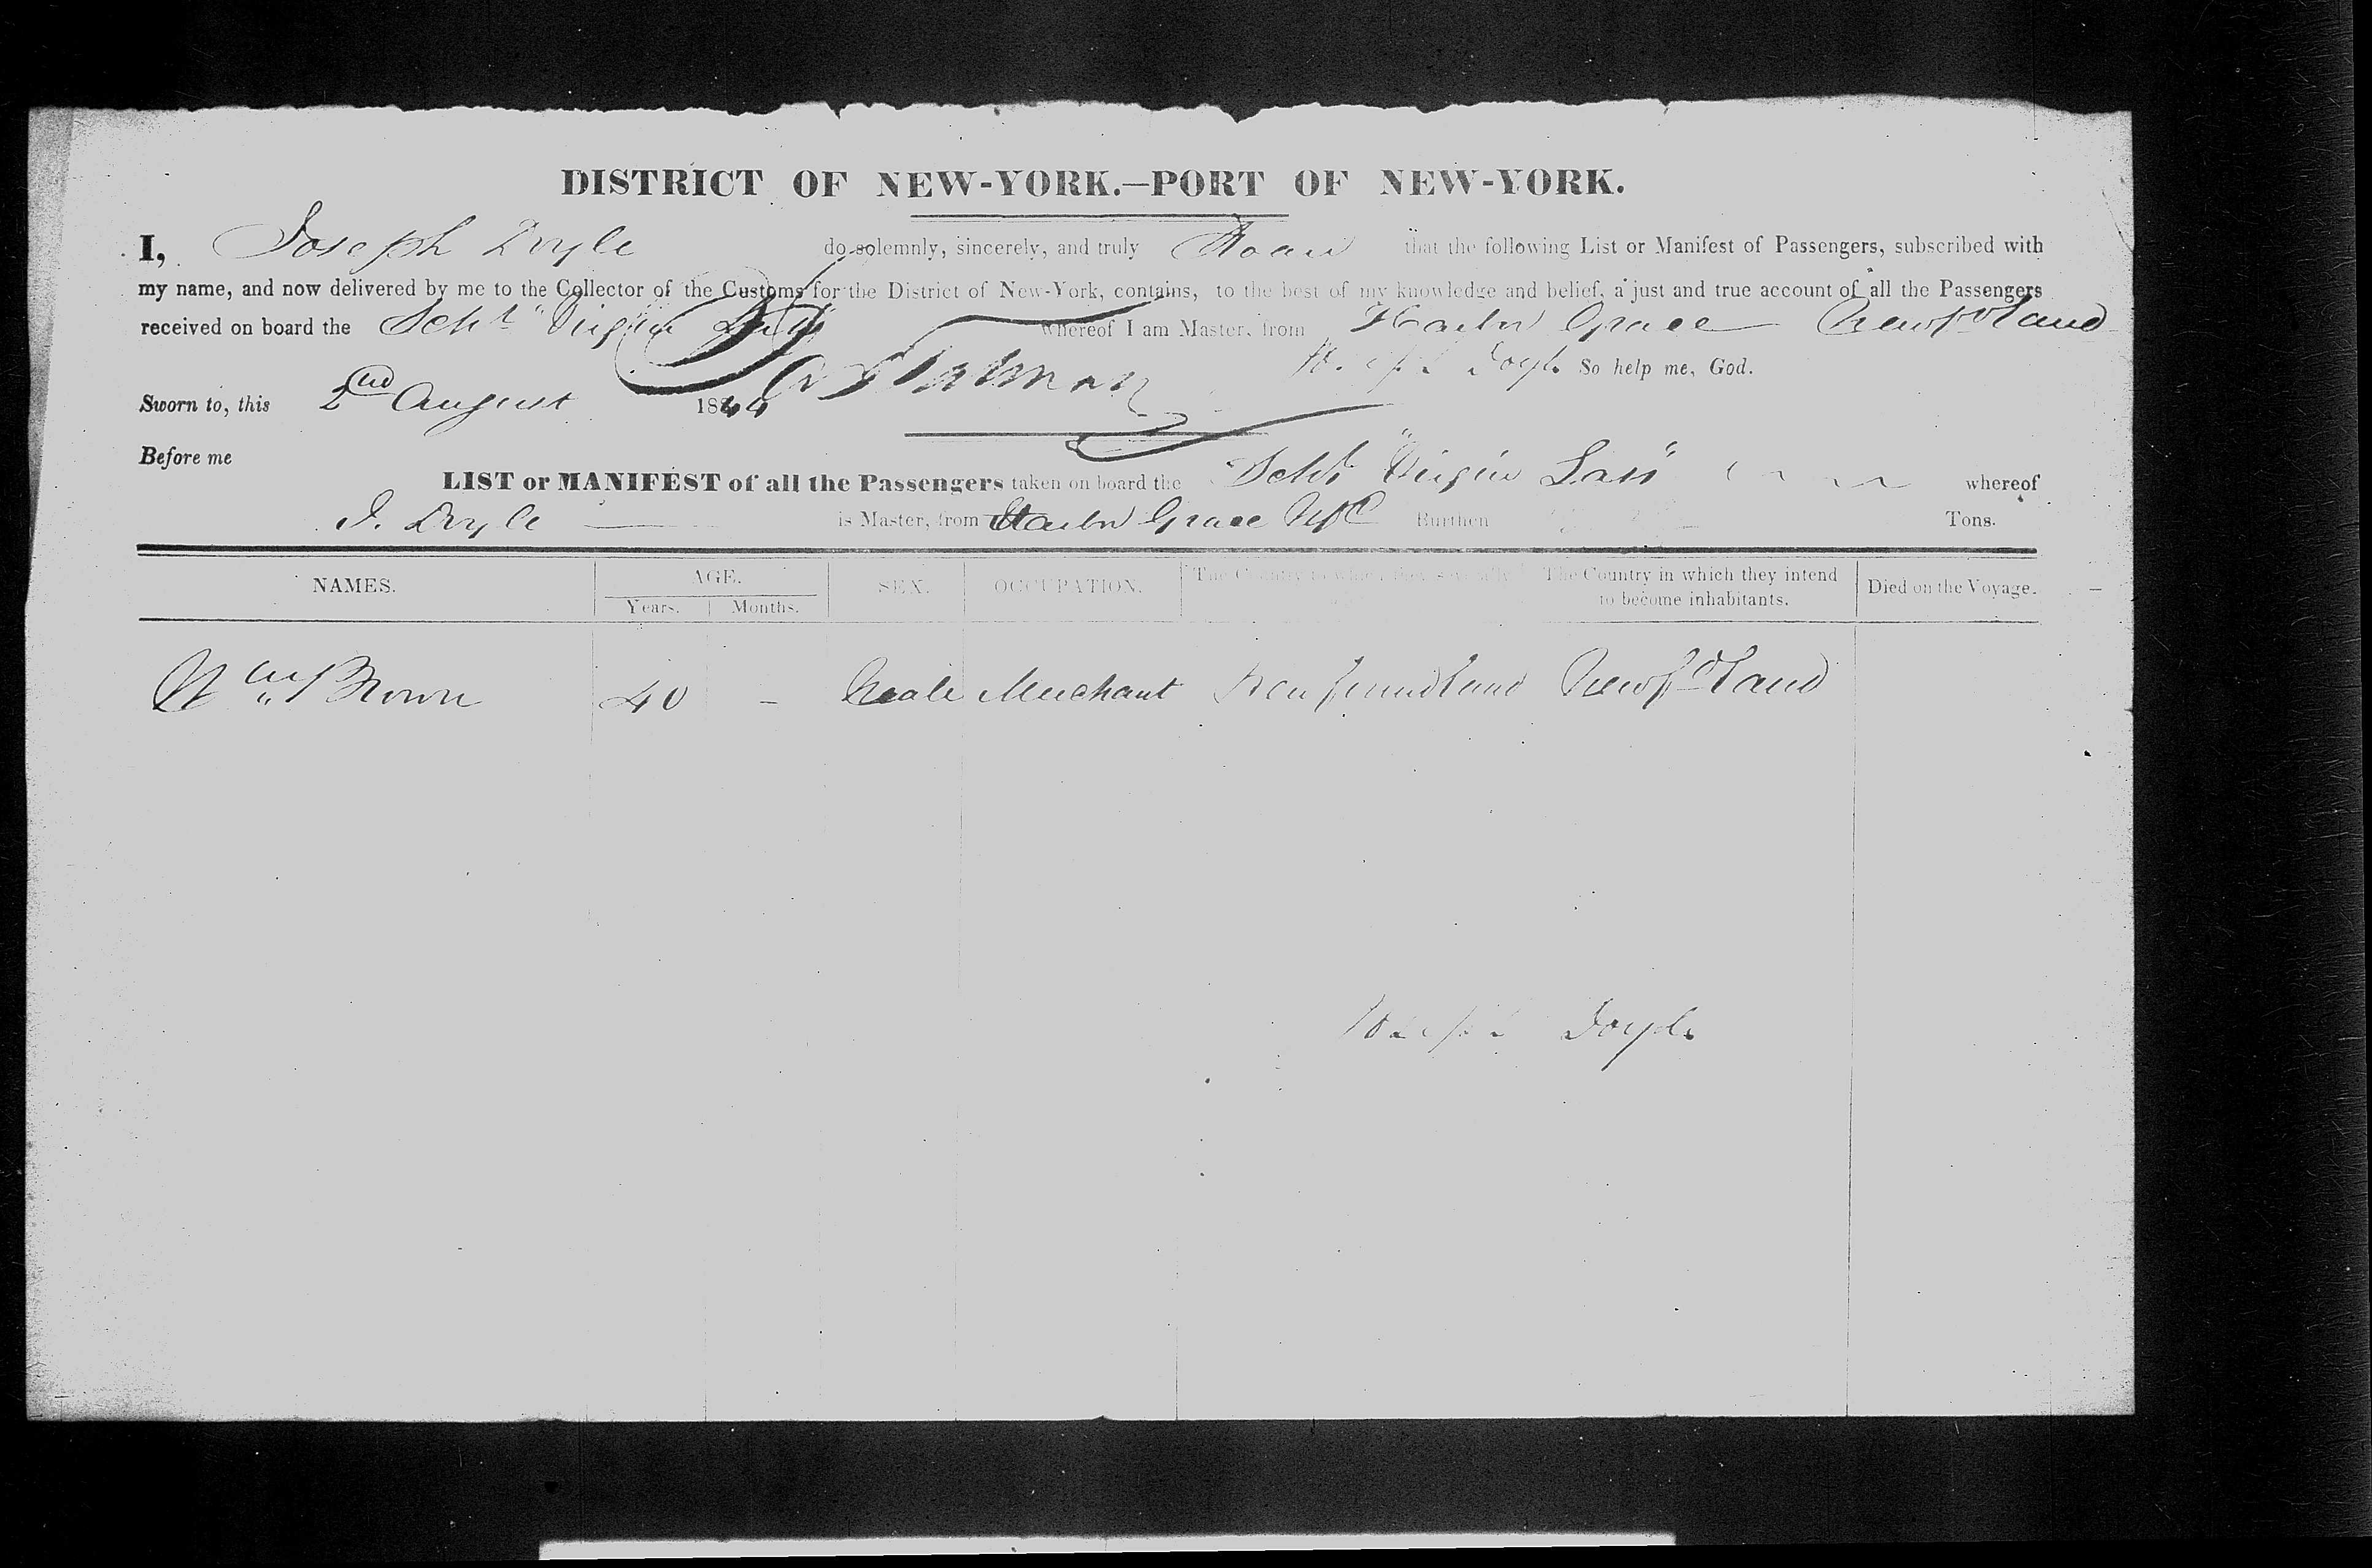 DISTRICT OF NEW-YORK.—PORT OF NEW-YORK.
I, Joseph Doyle do solemnly, sincerely, and truly Swear that the following List or Manifest of Passengers, subscribed with
my name, and now delivered by me to the Collector of the Customs for the District of New-York, contains, to the best of my knowledge and belief, a just and true account of all the Passengers
received on board the Schr "Virgin Lass" whereof I am Master, from Harbr Grace Newfdland
Joseph Doyle So help me, God.
Sworn to, this 2nd August 1844
Before me
LIST or MANIFEST of all the Passengers taken on board the Schr "Virgin Lass" whereof
J. Doyle is Master, from Harbr Grace Nfd Burthen Tons.
NAMES. AGE. SEX. OCCUPATION. The Country to which they severally The Country in which they intend to become inhabitants. Died on the Voyage.
Years. Months.
Wm Brown 40 - Male Merchant Newfoundland Newfdland
Joseph Doyle